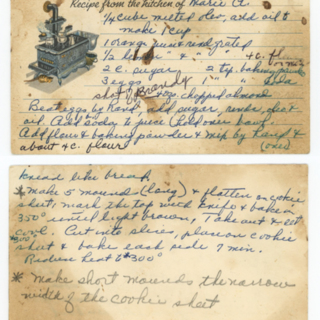 Recipe from the kitchen of Marie C.
1/4 cube melted oleo, add oil to
make 1 cup
1 Orange juice & rend, grated
1/2 lemon " & " " 4 c. fl
or more
2 c. sugar 2 tsp. baking powder
3 eggs 1 " " Soda
shot of Brandy chopped almond
Beat eggs by Hand, add sugar, rends, juice &
oil. Add soda to juice (Hold over bowl.
Add flour & baking powder & mix by hand &
about 4 c. flour) (over)
knead like bread
* make 5 mounds (long) & flatten on cookie
sheet, mark the top with knife & bake in
350° until light brown, Take out & let
cool. Cut into slices, place on cookie
300°
sheet & bake each side 7 min.
Reduce heat to 300°
* make short mounds the narrow
width of the cookie sheet